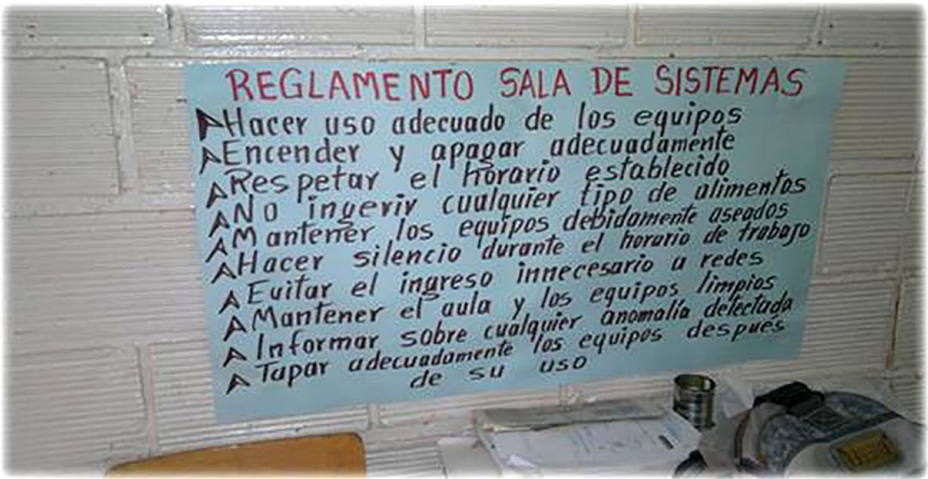 REGLAMENTO SALA DE SISTEMAS
Hacer uso adecuado de los equipos
Encender y apagar adecuadamente
Respetar el horario establecido
No ingerir cualquier tipo de alimentos
Mantener los equipos debidamente aseados
Hacer silencio durante el horario de trabajo
Evitar el ingreso innecesario a redes
Mantener el aula y los equipos limpios
Informar sobre cualquier anomalía detectada
Tapar adecuadamente los equipos después
de su uso